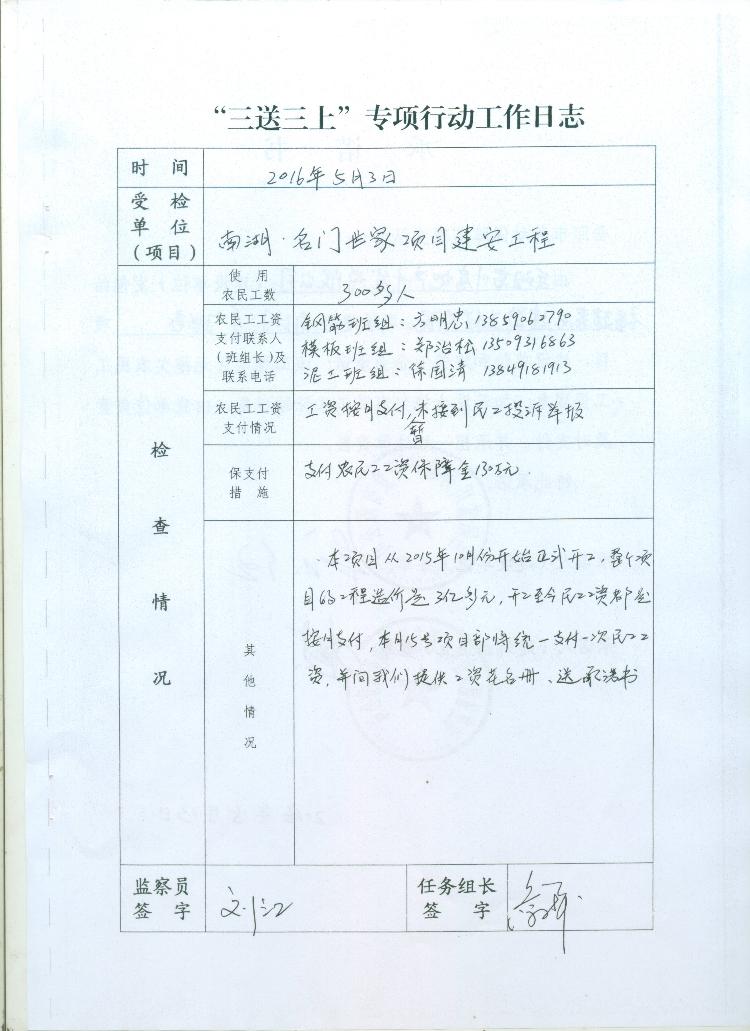 “三送三上”专项行动工作日志
时 间
2016年5月3日
受 检
单 位
(项目)
南湖·名门世家项目建安工程
检查情况
使 用
农民工数
300多人
农民工工资
支付联系人
(班组长)及
联系电话
钢筋班组:方明忠 13859062790
模板班组:郑治松 13509316863
泥工班组: 国清 13849181913
农民工工资
支付情况
工资按月支付,暂未接到民工投诉举报
保支付
措 施
支付农民工工资保障金130万元.
其他情况
本项目从2015年10月份开始正式开工,整个项
目的工程造价是3亿多元,开工至今民工工资都是
按月支付,本月15号项目部将统一支付一次民工工
资,并向我们提供工资花名册、送承诺书
监察员
签 字
刘江
任务组长
签 字